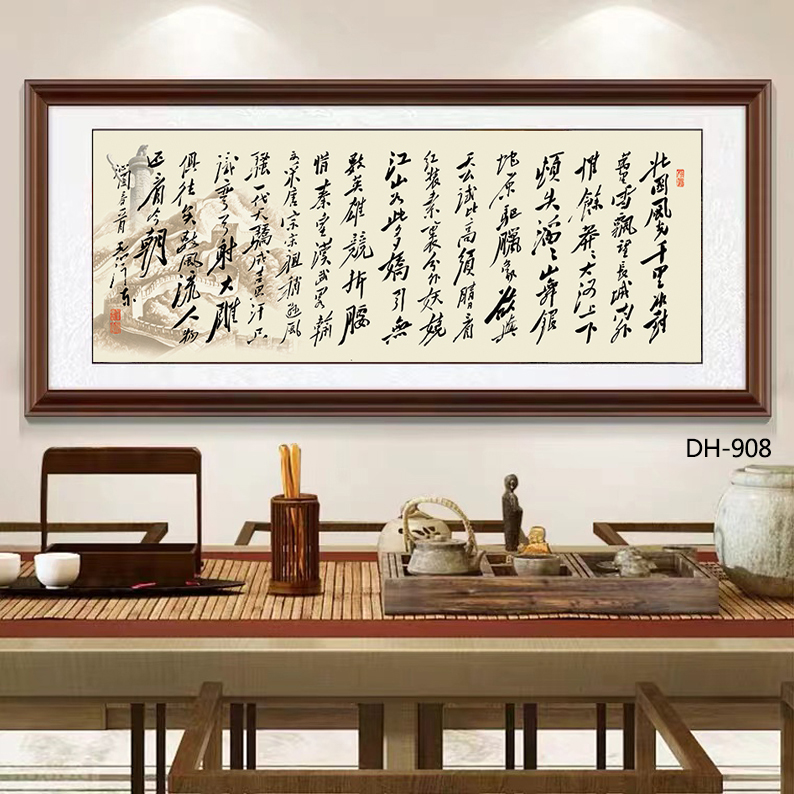 北國風光千里冰封
萬里雪飄望長城內外
惟餘莽々大河上下
頓失滔々山舞銀
蛇原馳臘象欲與
天公試比高須晴看
紅裝素裹分外妖嬈
江山如此多嬌引無
數英雄競折腰
惜秦皇漢武略輸
文采唐宗宋祖稍遜風
騷一代天驕成吉思汗只
識彎弓射大雕
俱往矣數風流人物
还看今朝
毛澤東
DH-908